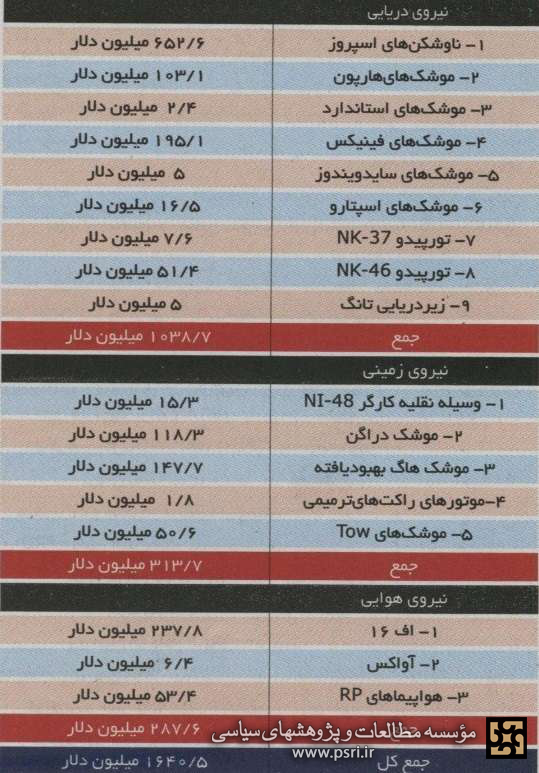 نیروی دریایی
۱- ناوشکن‌های اسپروز ۶۵۲/۶ میلیون دلار
۲- موشک‌های‌هارپون ۱۰۳/۱ میلیون دلار
۳- موشک‌های استاندارد ۲/۴ میلیون دلار
۴- موشک‌های فینیکس ۱۹۵/۱ میلیون دلار
۵- موشک‌های سایدویندوز ۵ میلیون دلار
۶- موشک‌های اسپتارو ۱۶/۵ میلیون دلار
۷- تورپیدو NK-37 ۷/۶ میلیون دلار
۸- تورپیدو NK-46 ۵۱/۴ میلیون دلار
۹- زیردریایی تانگ ۵ میلیون دلار
جمع ۱۰۳۸/۷ میلیون دلار
نیروی زمینی
۱- وسیله نقلیه کارگر NI-48 ۱۵/۳ میلیون دلار
۲- موشک دراگن ۱۱۸/۳ میلیون دلار
۳- موشک هاگ بهبودیافته ۱۴۷/۷ میلیون دلار
۴-موتورهای راکت‌های‌ترمیمی ۱/۸ میلیون دلار
۵- موشک‌های Tow ۵۰/۶ میلیون دلار
جمع ۳۱۳/۷ میلیون دلار
نیروی هوایی
۱- اف ۱۶ ۲۳۷/۸ میلیون دلار
۲- آواکس ۶/۴ میلیون دلار
۳- هواپیماهای RP ۵۳/۴ میلیون دلار
۲۸۷/۶ میلیون دلار
مؤسسه مطالعات و پژوهشهای سیاسی
www.psri.ir
جمع کل ۱۶۴۰/۵ میلیون دلار